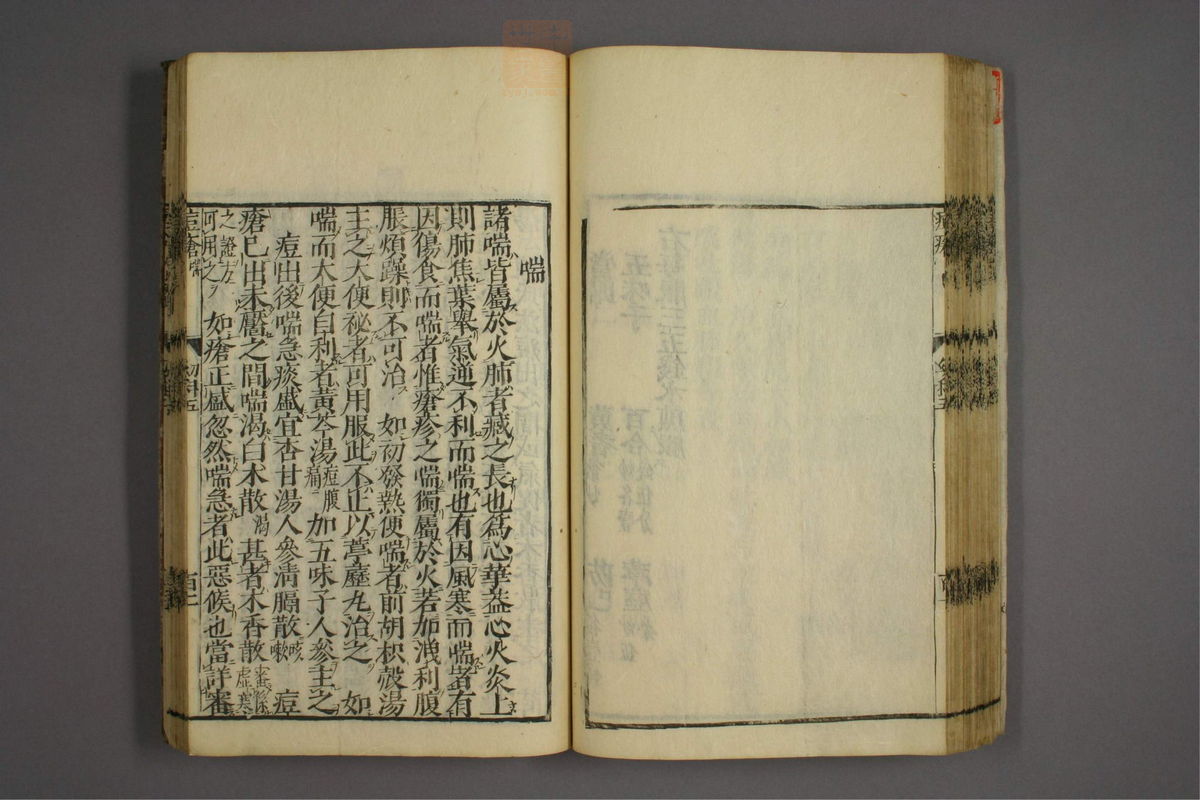 喘
諸喘皆屬於火肺者藏之長也爲心華葢心火炎上
則肺焦葉舉氣逆不利而喘也有因風寒而喘者有
因傷食而喘者惟瘡疹之喘獨屬於火若加洩利腹
脹煩躁則不可治 如初發熱便喘者前胡枳殼湯
主之大便秘者可用服此不止以葶藶丸治之 如
喘而大便自利者黃芩湯痘腹痛加五味子人參主之
痘出後喘急痰盛宜杏甘湯人參清膈散咳嗽 痘
瘡已出未靨之間喘渴白朮散渴甚者木香散審係虛寒
之證方可用之 如瘡正盛忽然喘急者此惡候也當詳審
痘瘡喘 幼科五 百二